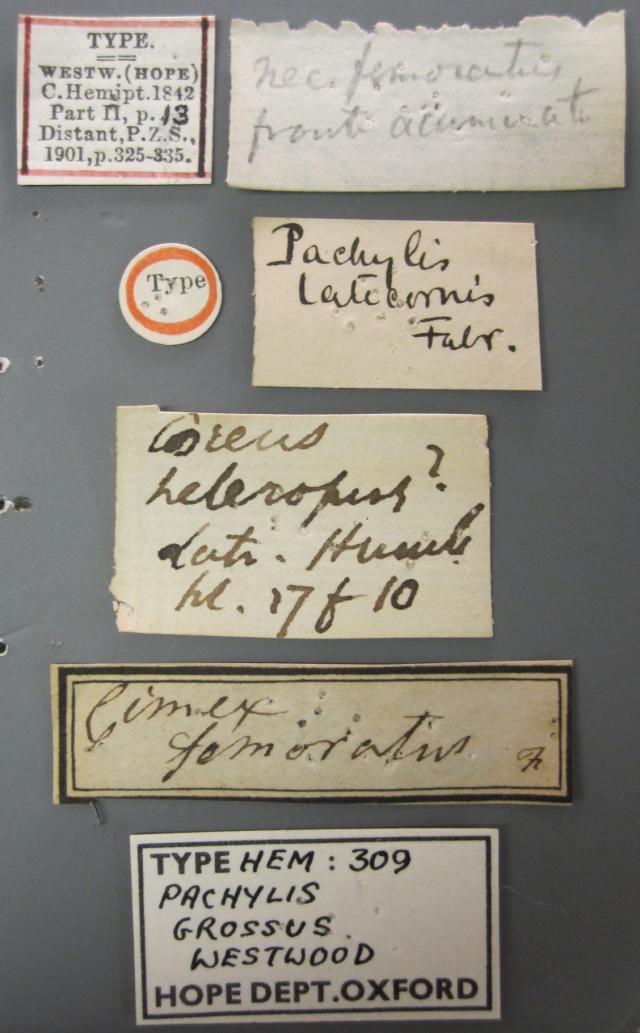 TYPE.
WESTW. (HOPE)
C.Hemipt.1842
Part II, p. 13
Distant, P.Z.S.,
1901, p.325-335.
nec. femoratus
fronte acuminat
Type
Pachylis
laticornis
Fabr.
Coreus
heteropus?
Latr. Humb
pl. 17 f 10
Cimex
femoratus F
TYPE HEM: 309
PACHYLIS
GROSSUS.
WESTWOOD
HOPE DEPT.OXFORD